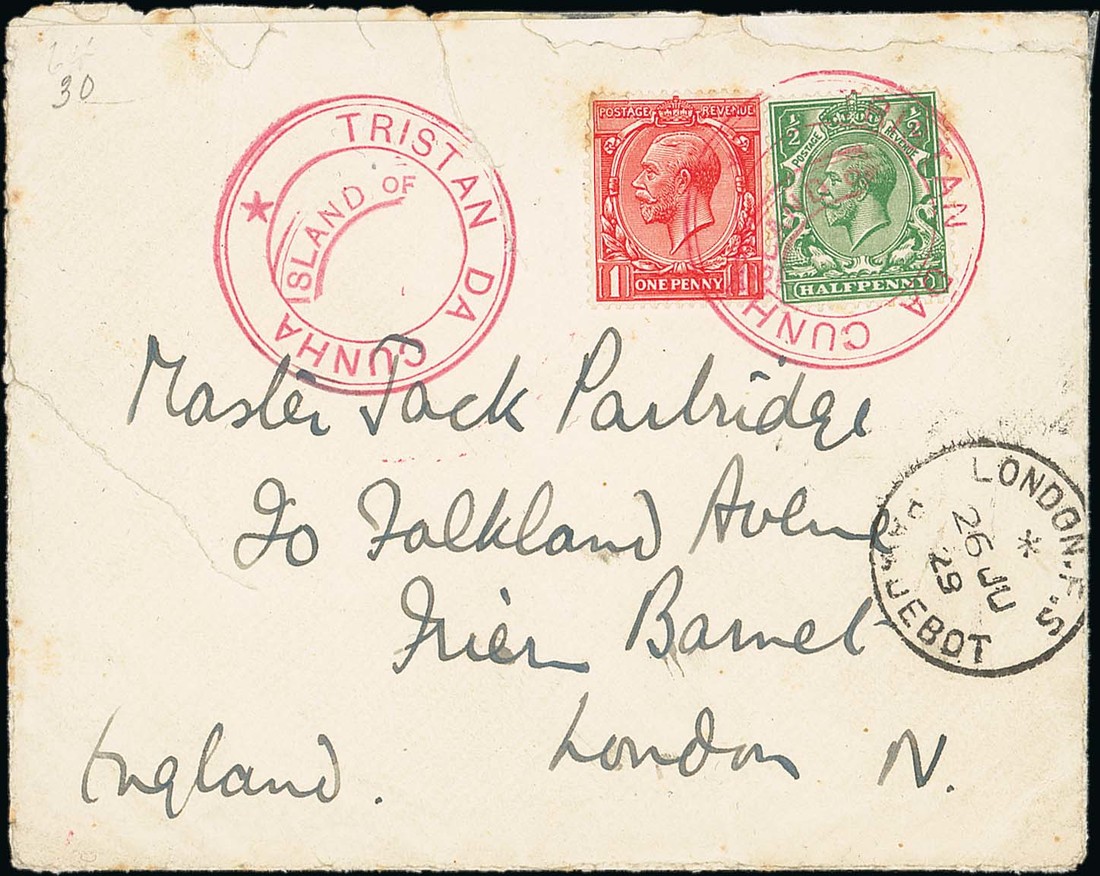 30
TRISTAN DA CUNHA
ISLAND OF
POSTAGE REVENUE
1 ONE PENNY 1
½ ½
POSTAGE REVENUE
HALFPENNY
TRISTAN DA CUNHA
Master Jack Partridge
20 Falkland Avenue
Frien Barnet
London N.
England.
LONDON.F.S
26 JU
29
PAQUEBOT